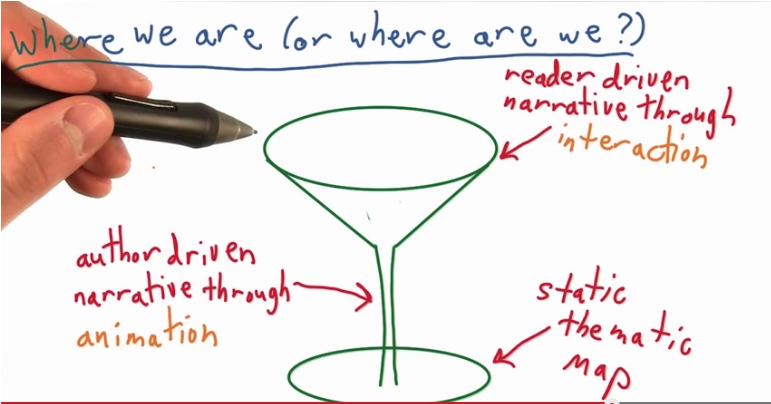 Where we are (or where are we?)
reader driven
narrative through
interaction
author driven
narrative through
animation
static
thematic
map